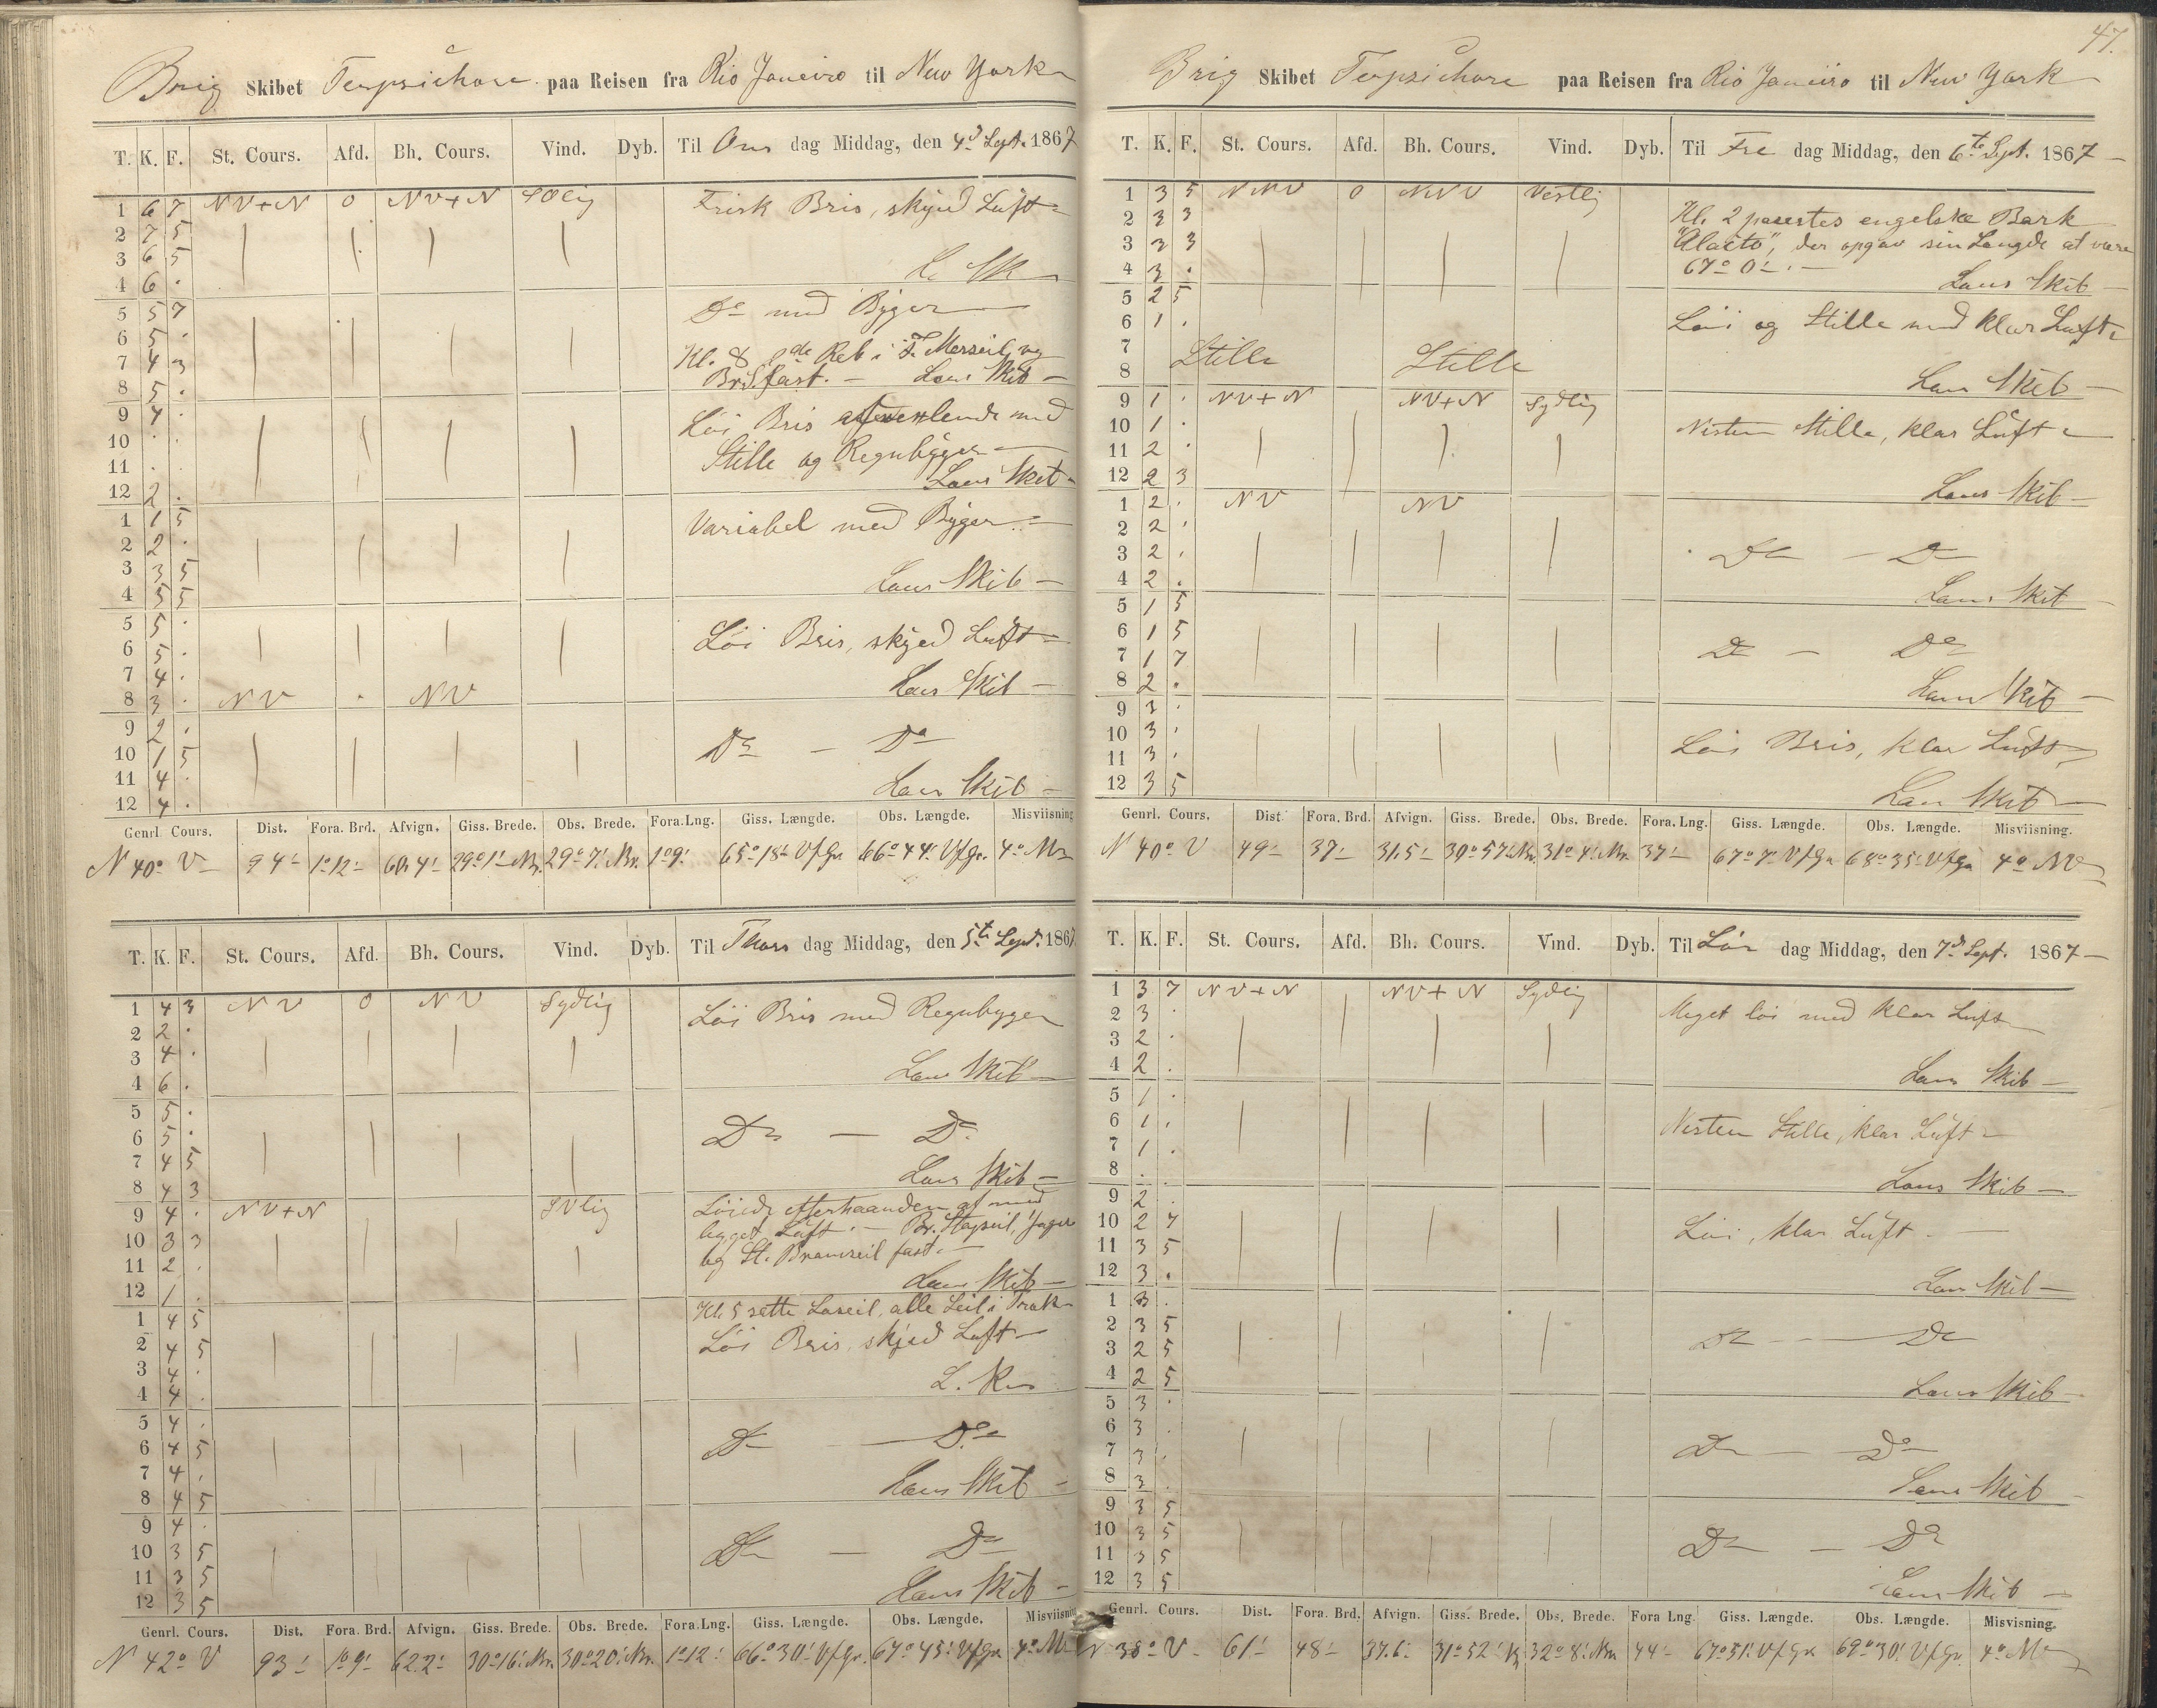 Brig Skibet Terpsichore paa Reisen fra Rio Janeiro til New York
T. K. F. St. Cours. Afd. Bh. Cours. Vind. Dyb. Til Ons dag Middag, den 4d Sept. 1867
1 6 7 NV+N 0 NV+N SOlig Frisk Bris, skyed Luft
2 7 5
3 6 5
4 6 .
5 5 7 Do med Byger
6 5 .
7 4 3 Kl. 8 2de Reb i F. Merseil og
8 5 . fast. Lens Skib
9 4 . Löi Bris afvexlende med
10 . . Stille og Regnbyger
11 . . Lens Skib
12 2 .
1 1 5 Variabel med Byger
2 2 .
3 3 5
4 5 5 Lens Skib
5 5 .
6 5 . Löi Bris, skyed Luft
7 4 . Lens Skib
8 3 . NV . NV
9 2 .
10 1 5 Do – Do
11 4 .
12 4 . Lens Skib
Genrl. Cours. Dist. Fora. Brd. Afvign. Giss. Brede. Obs. Brede. Fora. Lng. Giss. Længde. Obs. Længde. Misviisning
N 40° V 94' 1°12' 60,4' 29°1' Nr. 29°7' Nr. 1°9' 65°18' V f Gr. 66°44' V f Gr. 4°
T. K. F. St. Cours. Afd. Bh. Cours. Vind. Dyb. Til Thors dag Middag, den 5te Sept. 1867
1 4 3 NV 0 NV Sydlig Löi Bris med Regnbyger
2 2 .
3 4 .
4 6 . Lens Skib
5 5 .
6 5 . Do – Do
7 4 5
8 4 3 Lens Skib
9 4 . NV+N SVlig Löiede efterhaanden af med
10 3 3 bygget Luft. – Br. Stagseil, Jager
11 2 . og St. Bramseil fast.
12 1 . Lens Skib
1 4 5 Kl. 5 sette Laseil, alle Seil i Træk
2 4 5 Löi Bris, skjed Luft
3 4 .
4 4 .
5 4 .
6 4 5 Do – Do
7 4 .
8 4 5 Lens Skib
9 4 .
10 3 5 Do – Do
11 3 5
12 3 5 Lens Skib
Genrl. Cours. Dist. Fora. Brd. Afvign. Giss. Brede. Obs. Brede. Fora. Lng. Giss. Længde. Obs. Længde. Misviisning
N 42° V 93' 1°9' 62.2' 30°16' Nr. 30°20' Nr. 1°12' 66°30' V f Gr. 67°45' V f Gr. 4°
47.
Brig Skibet Terpsichore paa Reisen fra Rio Janeiro til New York
T. K. F. St. Cours. Afd. Bh. Cours. Vind. Dyb. Til Fre dag Middag, den 6te Sept. 1867
1 3 5 NNV 0 NNV Vestlig
2 3 3 Kl. 2 passertes engelske Bark
3 3 3 der opgav sin Længde at være
4 3 . 67° 0'. Lens Skib
5 2 5
6 1 . Löi og Stille med klar Luft
7 Stille Stille
8 Lens Skib
9 1 . NV+N NV+N Sydlig
10 1 . Nesten Stille, klar Luft
11 2 .
12 2 3 Lens Skib
1 2 . NV NV
2 2 .
3 2 . Do – Do
4 2 . Lens Skib
5 1 5
6 1 5
7 1 7 Do – Do
8 2 . Lens Skib
9 3 .
10 3 . Löi Bris, klar Luft
11 3 .
12 3 5 Lens Skib
Genrl. Cours. Dist. Fora. Brd. Afvign. Giss. Brede. Obs. Brede. Fora. Lng. Giss. Længde. Obs. Længde. Misviisning.
N 40° V 49' 37' 31.5' 30°57' Nr. 31°4' Nr. 37' 67°7' V f Gr. 68°35' V f Gr. 4° NV
T. K. F. St. Cours. Afd. Bh. Cours. Vind. Dyb. Til Lör dag Middag, den 7d Sept. 1867
1 3 7 NV+N NV+N Sydlig
2 3 . Meget löi med klar Luft
3 2 .
4 2 . Lens Skib
5 1 .
6 1 . Nesten Stille, klar Luft
7 1 .
8 . . Lens Skib
9 2 .
10 2 7 Löi, klar Luft
11 3 5
12 3 . Lens Skib
1 3 .
2 3 5 Do – Do
3 2 5
4 2 5 Lens Skib
5 3 .
6 3 . Do – Do
7 3 .
8 3 . Lens Skib
9 3 5
10 3 5 Do – Do
11 3 5
12 3 5 Lens Skib
Genrl. Cours. Dist. Fora. Brd. Afvign. Giss. Brede. Obs. Brede. Fora Lng. Giss. Længde. Obs. Længde. Misvisning.
N 38° V 61' 48' 37.6' 31°52' N 32°8' Nr. 44' 67°51' V f Gr. 69°30' V f Gr. 4°